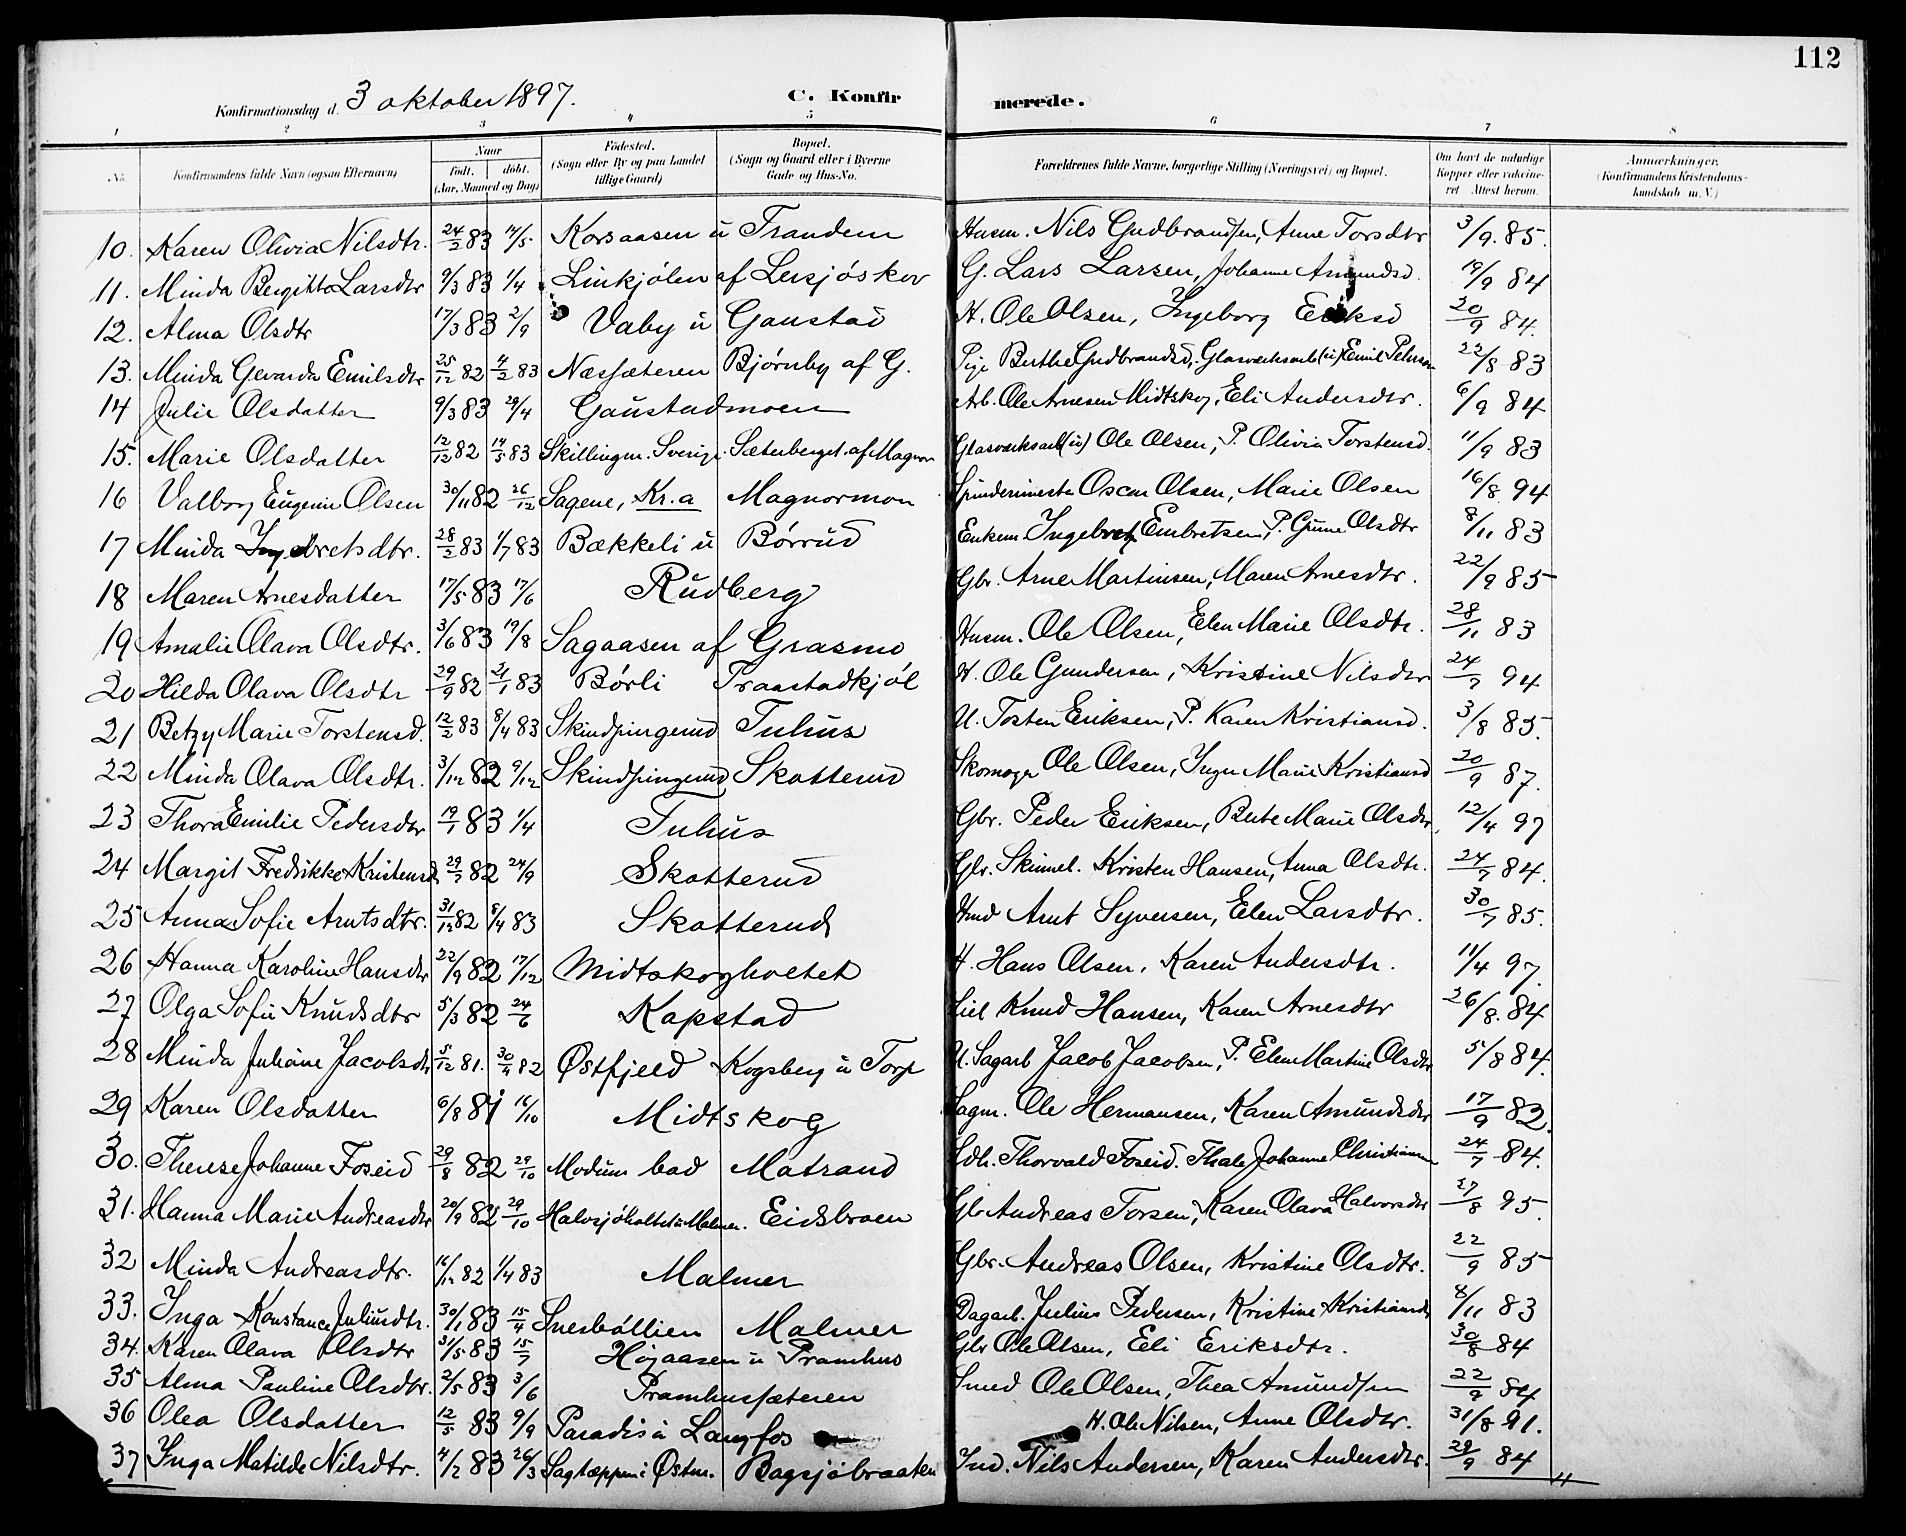 112
Konfirmationsdag d. 3 oktober 1897. C. Konfirmerede.
1 2 3 4 5 6 7 8
No. Konfirmandens fulde Navn (ogsaa Efternavn) Naar født. døbt. (Aar, Maaned og Dag) Fødested. (Sogn eller By og paa Landet tillige Gaard) Bopæl. (Sogn og Gaard eller i Byerne Gade og Hus-No. Forældrenes fulde Navne, borgerlige Stilling (Næringsvei) og Bopæl. Om havt de naturlige Kopper eller vakcineret Attest herom. Anmærkninger. (Konfirmandens Kristendomskundskab m. V.)
10. Karen Olivia Nilsdtr. 24/2 83 14/5 Korsaasen u Trandem Husm. Nils Gudbrandsen, Anne Torsdtr 3/9. 85.
11. Minda Bergitta Larsdtr 9/3 83 1/4 Linkjølen af Lersjøskov G. Lars Larsen, Johanne Amundsd. 19/9 84
12. Alma Olsdtr 17/3 83 2/9 Vaby u Gaustad H. Ole Olsen, Ingeborg Eriksd 20/9 84.
13. Minda Gevarda Emilsdtr 25/12 82 4/2 83 Næssæteren Bjørnby af G. Pige Berthe Gudbrandsd, Glasværksarb (u) Emil Peterson 22/8 83
14 Julie Olsdatter 9/3 83 29/4 Gaustadmoen Arb. Ole Arnesen Midtskog, Eli Andersdtr. 6/9 84
15. Marie Olsdatter 12/12 82 14/5 83 Skillingm. Sverige. Sæterberget af Magnor Glasværksarb (u) Ole Olsen, P. Olivia Torstensd. 11/9 83
16 Valborg Eugenie Olsen 30/11 82 26/12 Sagene, Kr.a Magnormon Spinderimester Oscar Olsen, Marie Olsen 16/8. 94
17 Minda Ingebretsdtr. 28/2 83 1/7 83 Bækkeli u Børrud Enkem. Ingebret Embretsen, P. Gune Olsdtr 8/11 83
18 Maren Arnesdatter 17/5 83 17/6 Rudberg Gbr. Arne Martinsen, Maren Arnesdtr. 22/9 85
19 Amalie Olava Olsdtr. 3/6 83 19/8 Sagaasen af Grasmo Husm. Ole Olsen, Elen Marie Olsdtr. 28/11 83
20 Hilda Olava Olsdtr 29/9 82 21/1 83 Børli Praastadkjøl H. Ole Gundersen, Kristine Nilsdtr 24/7 94
21 Betzy Marie Torstensd. 12/2 83 8/4 83 Skindpungrud Tuhus U. Tosten Eriksen, P. Karen Kristiansd. 3/8 85.
22 Minda Olava Olsdtr. 3/12 82 9/12 Skindpungrud Skotterud Skomager Ole Olsen, Inger Marie Kristiansd 20/9 87.
23 Thora Emilie Pedersdtr 19/1 83 1/4 Tuhus Gbr. Peder Eriksen, Berte Marie Olsdtr. 12/4 97
24 Margit Fredrikke Kristensd. 29/7 82 24/9 Skotterud Gbr. Skinnel. Kristen Hansen, Anna Olsdtr. 24/7 84.
25 Anna Sofie Arntsdtr. 31/12 82 8/4 83 Skotterud Arnt Syversen, Elen Larsdtr. 30/7 85.
26 Hanna Karoline Hansdtr 22/9 82 17/12 Midtskogholtet H. Hans Olsen, Karen Andersdtr. 11/4 97.
27 Olga Sofie Knudsdtr 5/3 82 24/6 Kapstad Knud Hansen, Karen Arnesdtr 26/8. 84
28 Minda Juliane Jacobsdtr 5/12 81. 30/4 82 Østfjeld Kogsberg u Torp U. Sagarb Jacob Jacobsen, P. Elen Martine Olsdtr 5/8 84.
29 Karen Olsdatter 6/8 81 16/10 Midtskog Sagm. Ole Hermansen, Karen Amundsdtr 17/9 82.
30. Therese Johanne Foseid 29/8 82 29/10 Modum bad Matrand Ldh. Thorvald Foseid. Thale Johanne Christiansen 24/7 84.
31. Hanna Marie Andreasdtr 20/9 82 29/10 Halvsjøholtet u Malmer. Eidsbroen Gbr Andreas Torsen, Karen Olava Halvorsdtr 27/8 95.
32 Minda Andreasdtr. 16/12 82 1/4 83 Malmer Gbr. Andreas Olsen, Kristine Olsdtr. 22/9 85
33. Inga Konstance Juliusdtr. 30/1 83 15/4 Snesbøllien Malmer Dagarb. Julius Pedersen, Kristine Kristiansdtr 8/11 83
34. Karen Olava Olsdtr 31/5 83 15/7 Høgaasen u Pramhus Gbr Ole Olsen, Eli Eriksdtr. 30/8 84
35 Alma Pauline Olsdtr. 2/5 83 3/6 Pramhussæteren Smed Ole Olsen, Thea Amundsen 22/9 84
36 Olea Olsdatter 12/5 83 9/9 Paradis u Langfos H. Ole Nilsen, Anne Olsdtr. 31/8 91.
37 Inga Matilde Nilsdtr. 4/2 83 26/3 Sagtæppen i Østm. Bagsjøbraaten Ind. Nils Andersen, Karen Andersdtr. 29/9 84